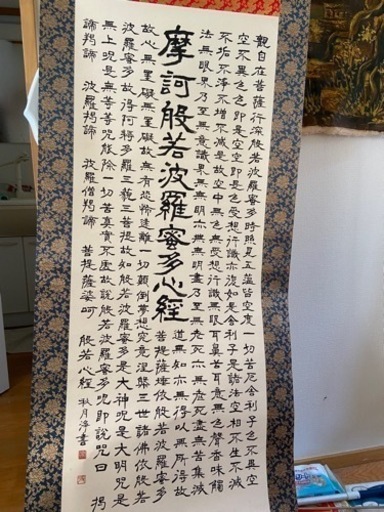 觀自在菩薩行深般若波羅蜜多時照見五蘊皆空度一切苦厄舍利子色不異空
空不異色色即是空空即是色受想行識亦復如是舍利子是諸法空相不生不滅
不垢不淨不增不減是故空中無色無受想行識無眼耳鼻舌身意無色聲香味觸
法無眼界乃至無意識界無無明亦無無明盡乃至無老死亦無老死盡無苦集滅
摩訶般若波羅蜜多心經
道無知亦無得以無所得故
菩提薩埵依般若波羅蜜多
故心無罣礙無罣礙故無有恐怖遠離一切顛倒夢想究竟涅槃三世諸佛依般若
波羅蜜多故得阿耨多羅三藐三菩提故知般若波羅蜜多是大神咒是大明咒是
無上咒是無等等咒能除一切苦真實不虛故說般若波羅蜜多咒即說咒曰 揭
諦羯諦 波羅揭諦 波羅僧羯諦 菩提薩婆呵 般若心經 秋月淳書